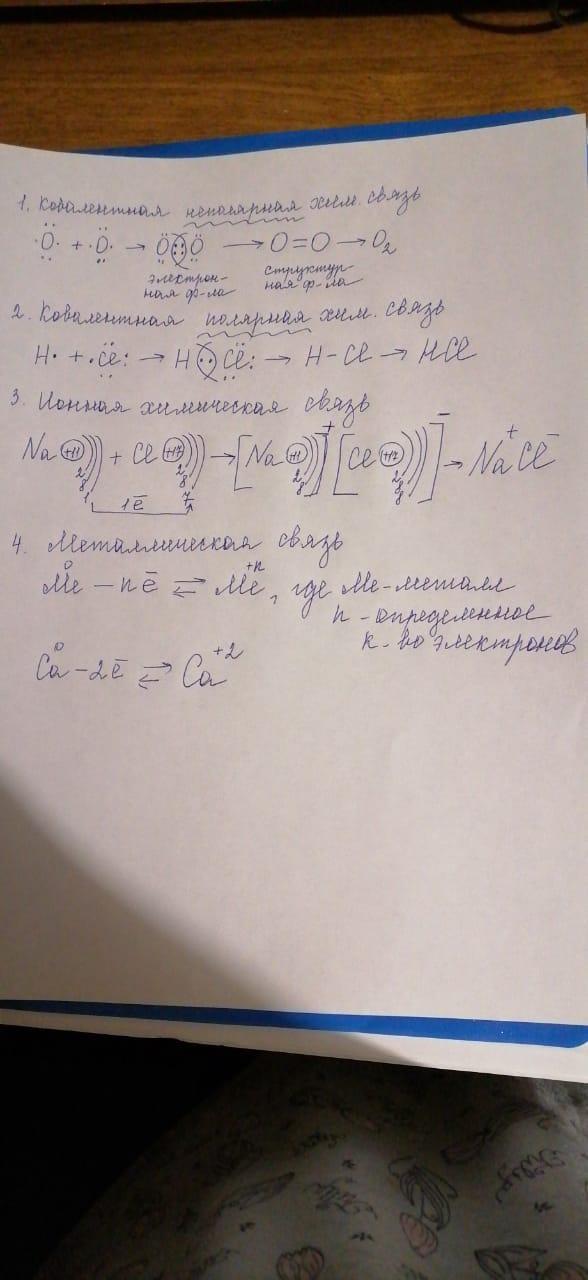 1. Ковалентная неполярная хим. связь
·Ö· + ·Ö· → Ö::Ö → O=O → O₂
электрон- структур
ная ф-ла ная ф-ла
2. Ковалентная полярная хим. связь
H· + ·Cl: → H : Cl: → H-Cl → HCl
3. Ионная химическая связь
Na +11 ))) + Cl +17 ))) → [Na +11 )))]⁺ [Cl +17 )))]⁻ → Na⁺Cl⁻
2 8 1 2 8 7 2 8 2 8 8
1ē
4. Металлическая связь
Me⁰ - nē ⇄ Me⁺ⁿ, где Me-металл
n - определенное
к-во электронов
Ca⁰ - 2ē ⇄ Ca⁺²